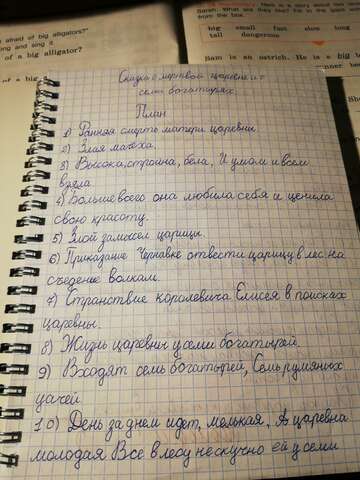 afraid of big alligators?"
ong and sing it
of a big alligator?
of a big al
Here is a story about two ani
Sarah. What are they like? Fill in the gaps
from the box.
big small fast slow long
tall dangerous
Sam is an ostrich. He is a big
Сказка о мертвой царевне и
семи богатырях.
План
1) Ранняя смерть матери царевны
2) Злая мачеха.
3) Высока, стройна, бела, И умом и всем
взяла
4) Больше всего она любила себя и ценила
свою красоту.
5) Злой замысел царицы.
6) Приказание Чернавке отвести царицу в лес на
съедение волкам.
7) Странствие королевича Елисея в поисках
царевны.
8) Жизнь царевны у семи богатырей.
9) Входят семь богатырей, Семь румяных
усачей
10) День за днем идет, мелькая, А царевна
молодая Все в лесу не скучно ей у семи